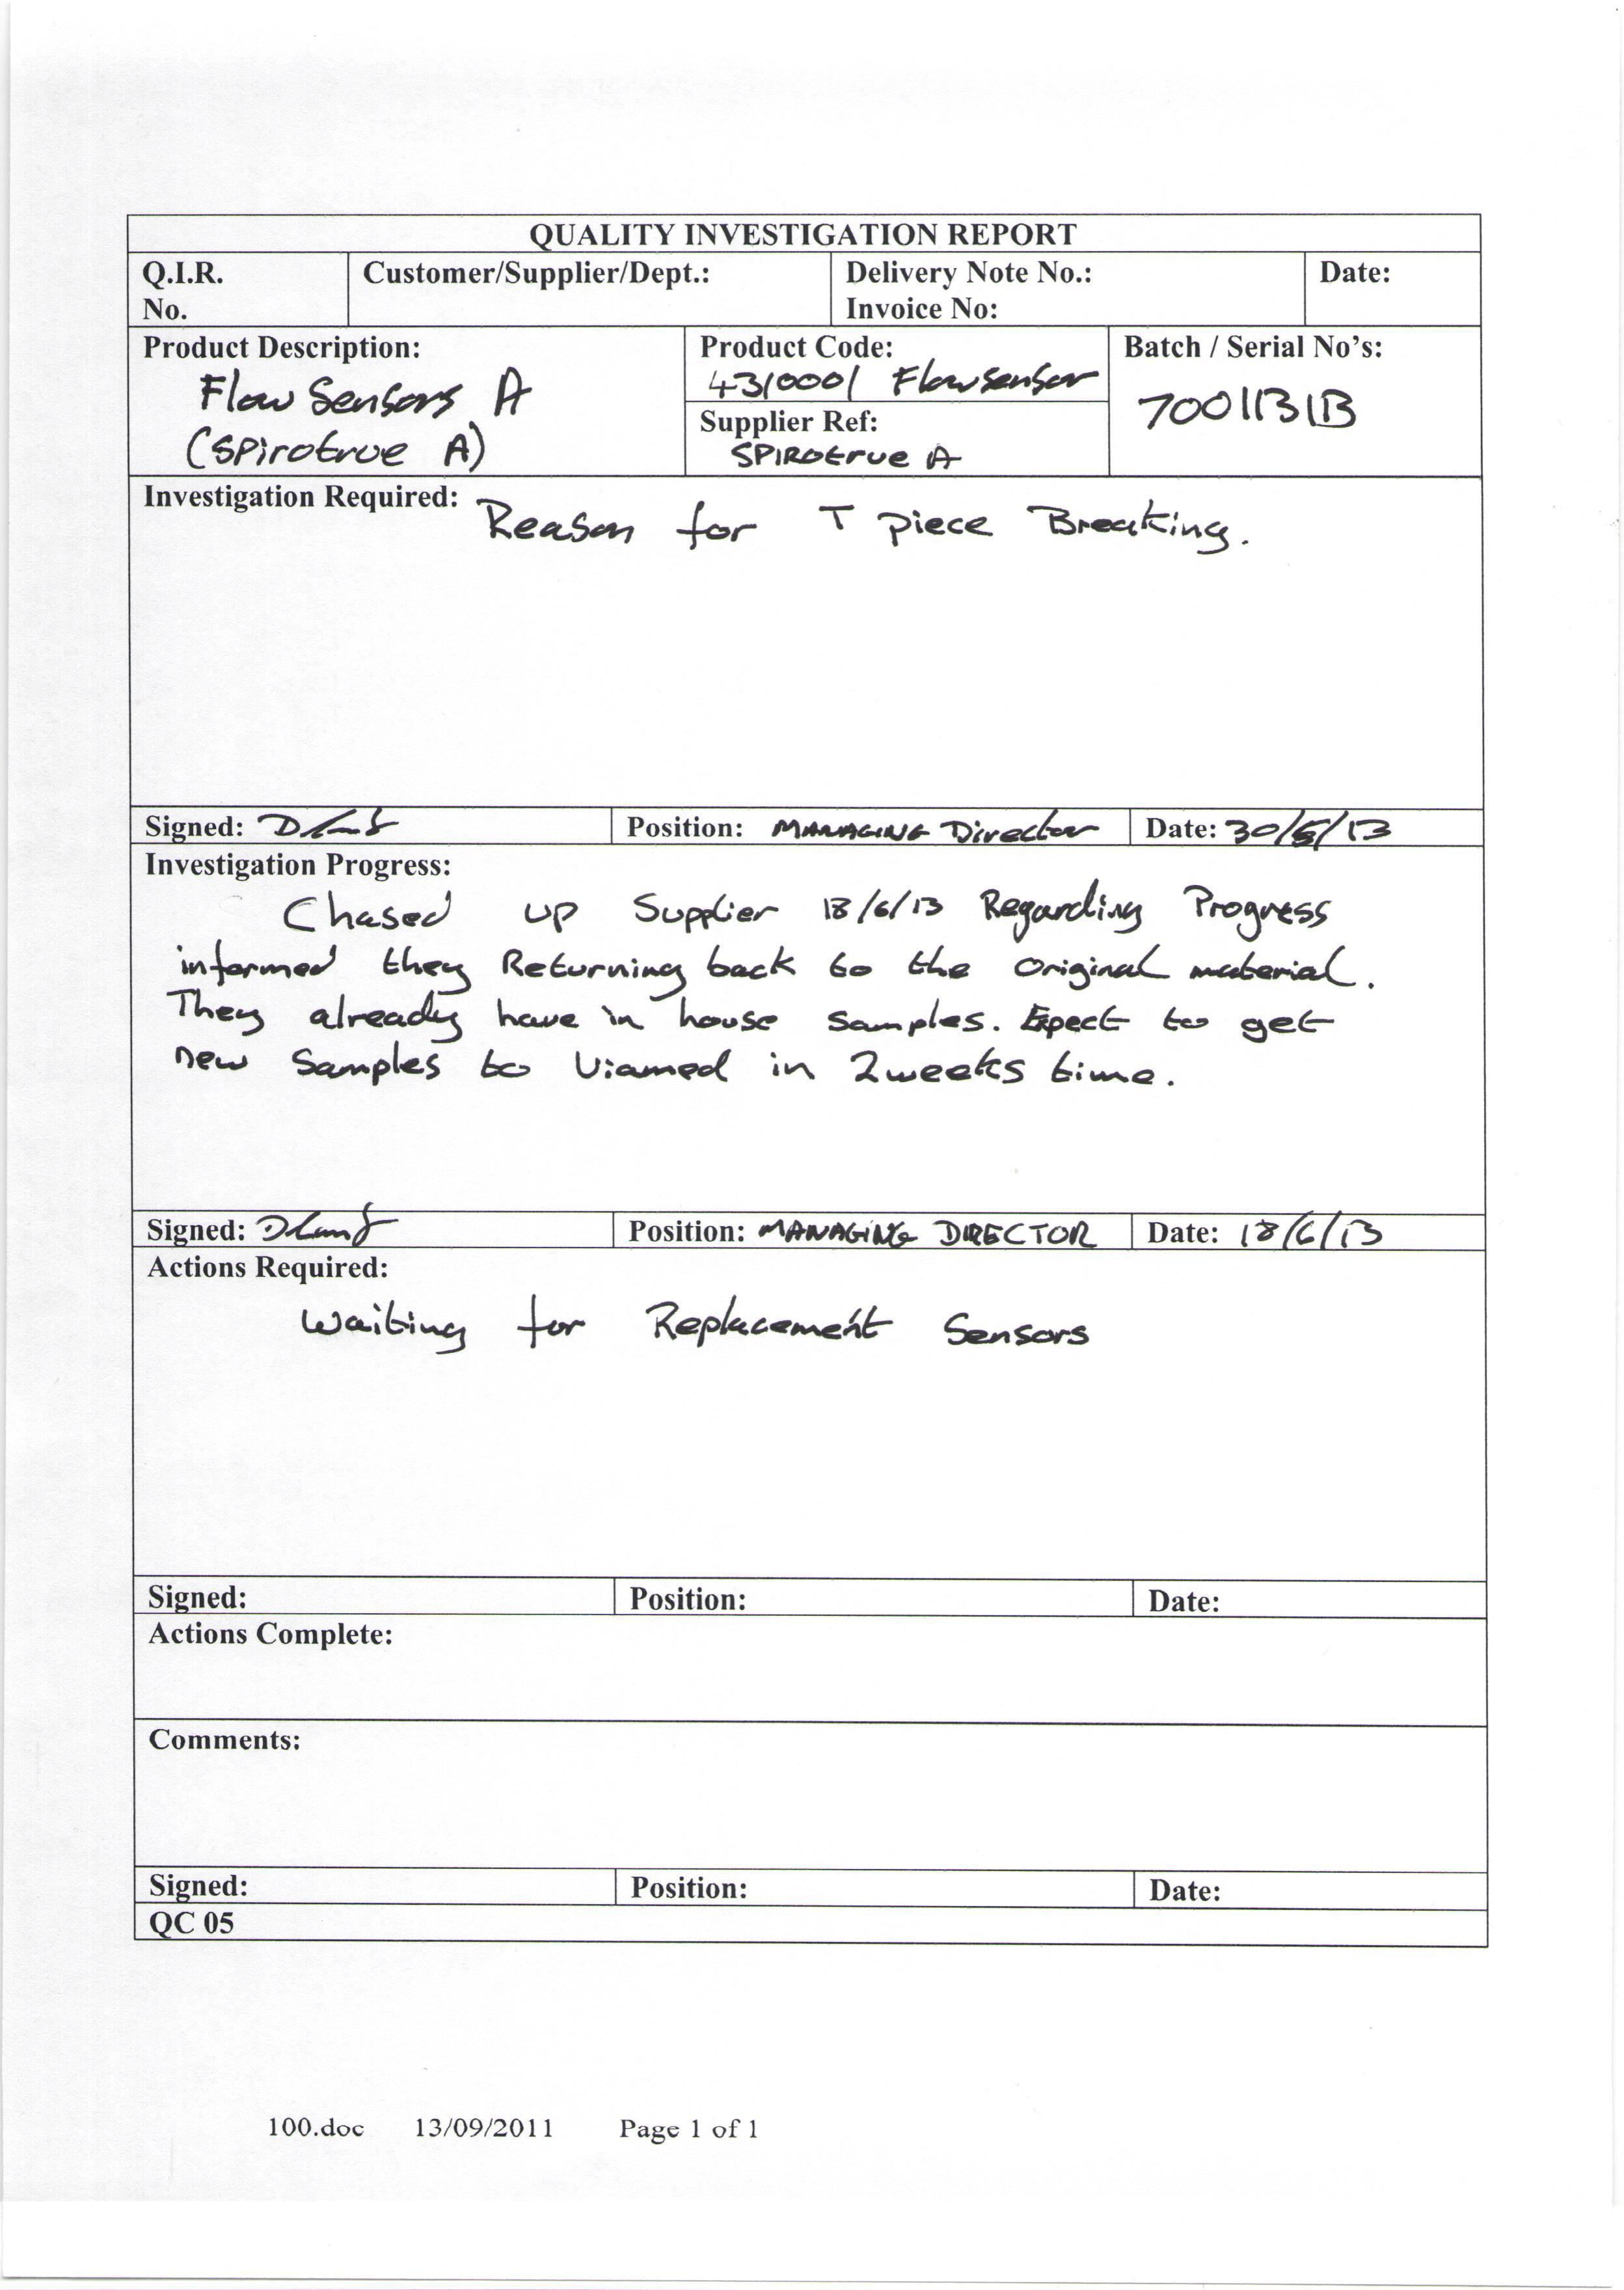 QUALITY INVESTIGATION REPORT
Q.I.R. No.
Customer/Supplier/Dept.:
Delivery Note No.:
Invoice No:
Date:
Product Description:
Flow Sensors A
(Spirotrue A)
Product Code:
4310001 Flowsensor
Supplier Ref:
SPIROtrue A
Batch / Serial No's:
7001131B
Investigation Required: Reason for T piece Breaking.
Signed:
Position: MANAGING Director
Date: 30/5/13
Investigation Progress:
Chased up Supplier 18/6/13 Regarding Progress
informed they Returning back to the original material.
They already have in house samples. Expect to get
new Samples to Viamed in 2weeks time.
Signed:
Position: MANAGING DIRECTOR
Date: 18/6/13
Actions Required:
Waiting for Replacement Sensors
Signed:
Position:
Date:
Actions Complete:
Comments:
Signed:
Position:
Date:
QC 05
100.doc 13/09/2011 Page 1 of 1